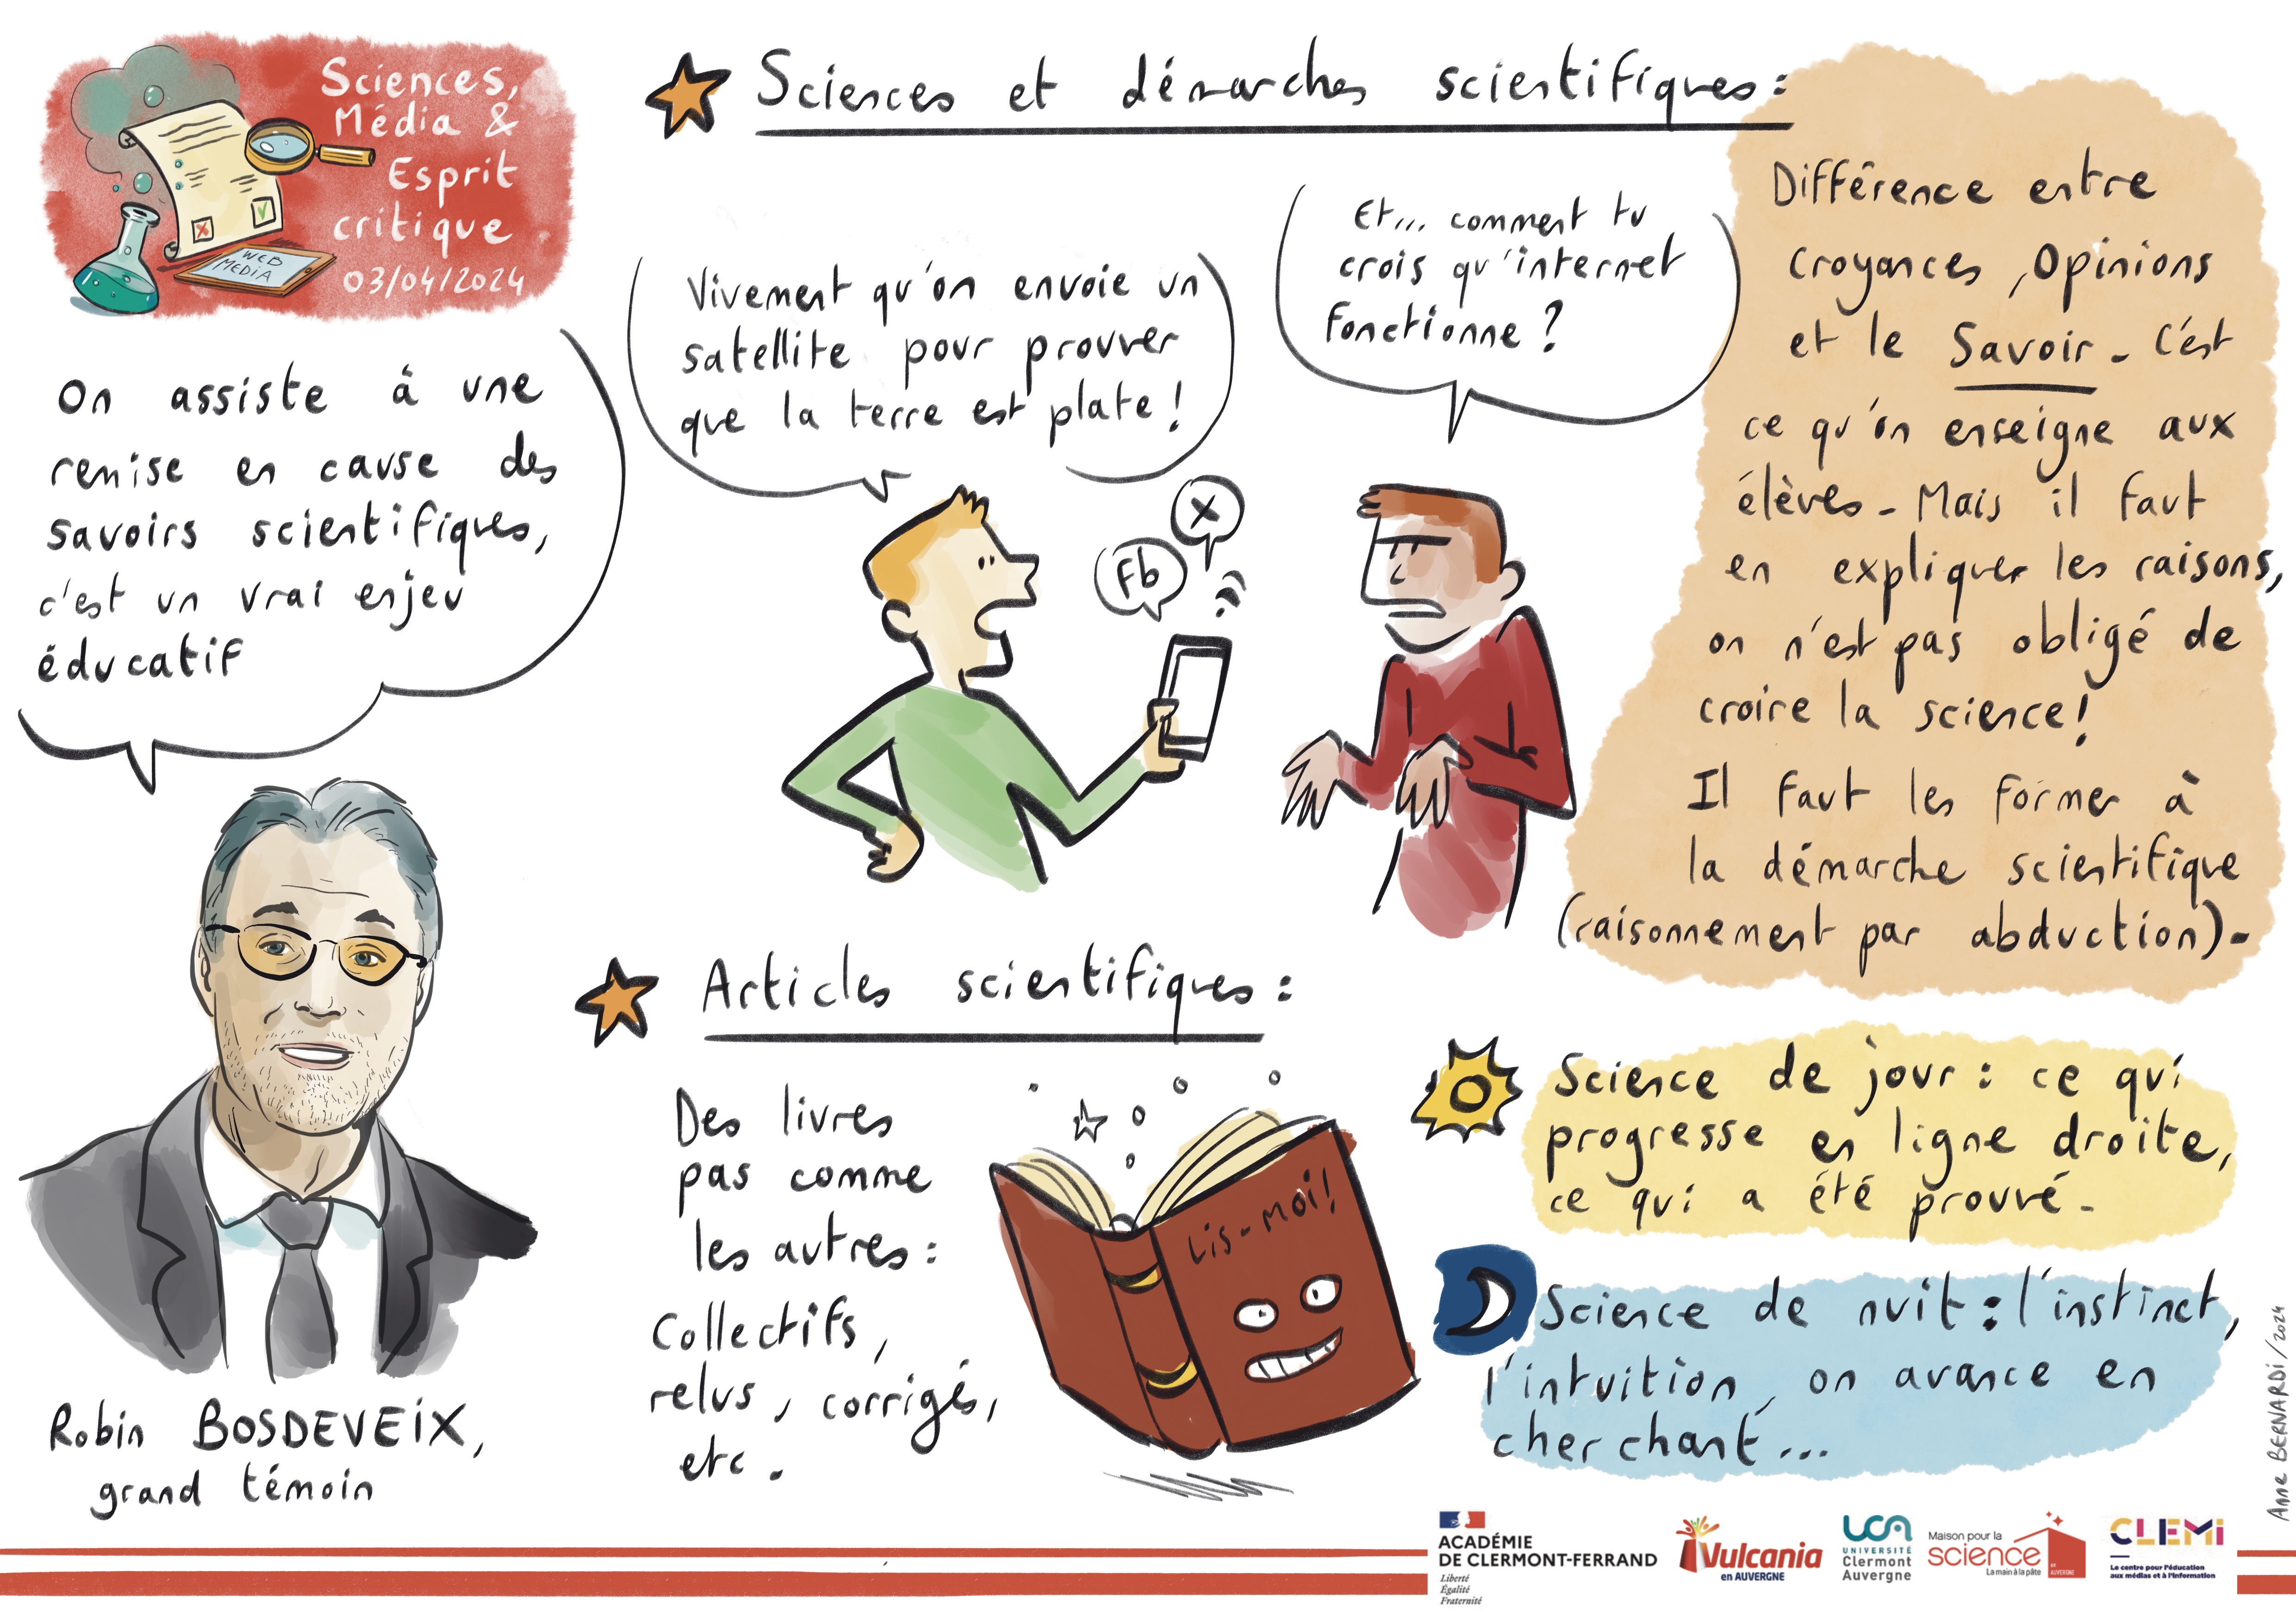 Sciences,
Média &
Esprit
critique
03/04/2024
WEB
MEDIA
On assiste à une
remise en cause des
savoirs scientifiques,
c'est un vrai enjeu
éducatif
Robin BOSDEVEIX,
grand témoin
Sciences et démarches scientifiques :
Vivement qu'on envoie un
satellite pour prouver
que la terre est plate !
Et... comment tu
crois qu'internet
fonctionne ?
X
Fb
Différence entre
croyances, Opinions
et le Savoir - C'est
ce qu'on enseigne aux
élèves - Mais il faut
en expliquer les raisons,
on n'est pas obligé de
croire la science !
Il faut les former à
la démarche scientifique
(raisonnement par abduction) -
Articles scientifiques :
Des livres
pas comme
les autres :
Collectifs,
relus, corrigés,
etc.
Lis-moi !
Science de jour : ce qui
progresse en ligne droite,
ce qui a été prouvé -
Science de nuit : l'instinct,
l'intuition, on avance en
cherchant...
Anne BERNARDI/2024
ACADÉMIE
DE CLERMONT-FERRAND
Liberté
Égalité
Fraternité
Vulcania
en AUVERGNE
UCA
UNIVERSITÉ
Clermont
Auvergne
Maison pour la
science
La main à la pâte
EN
AUVERGNE
CLEMI
Le centre pour l'éducation
aux médias et à l'information